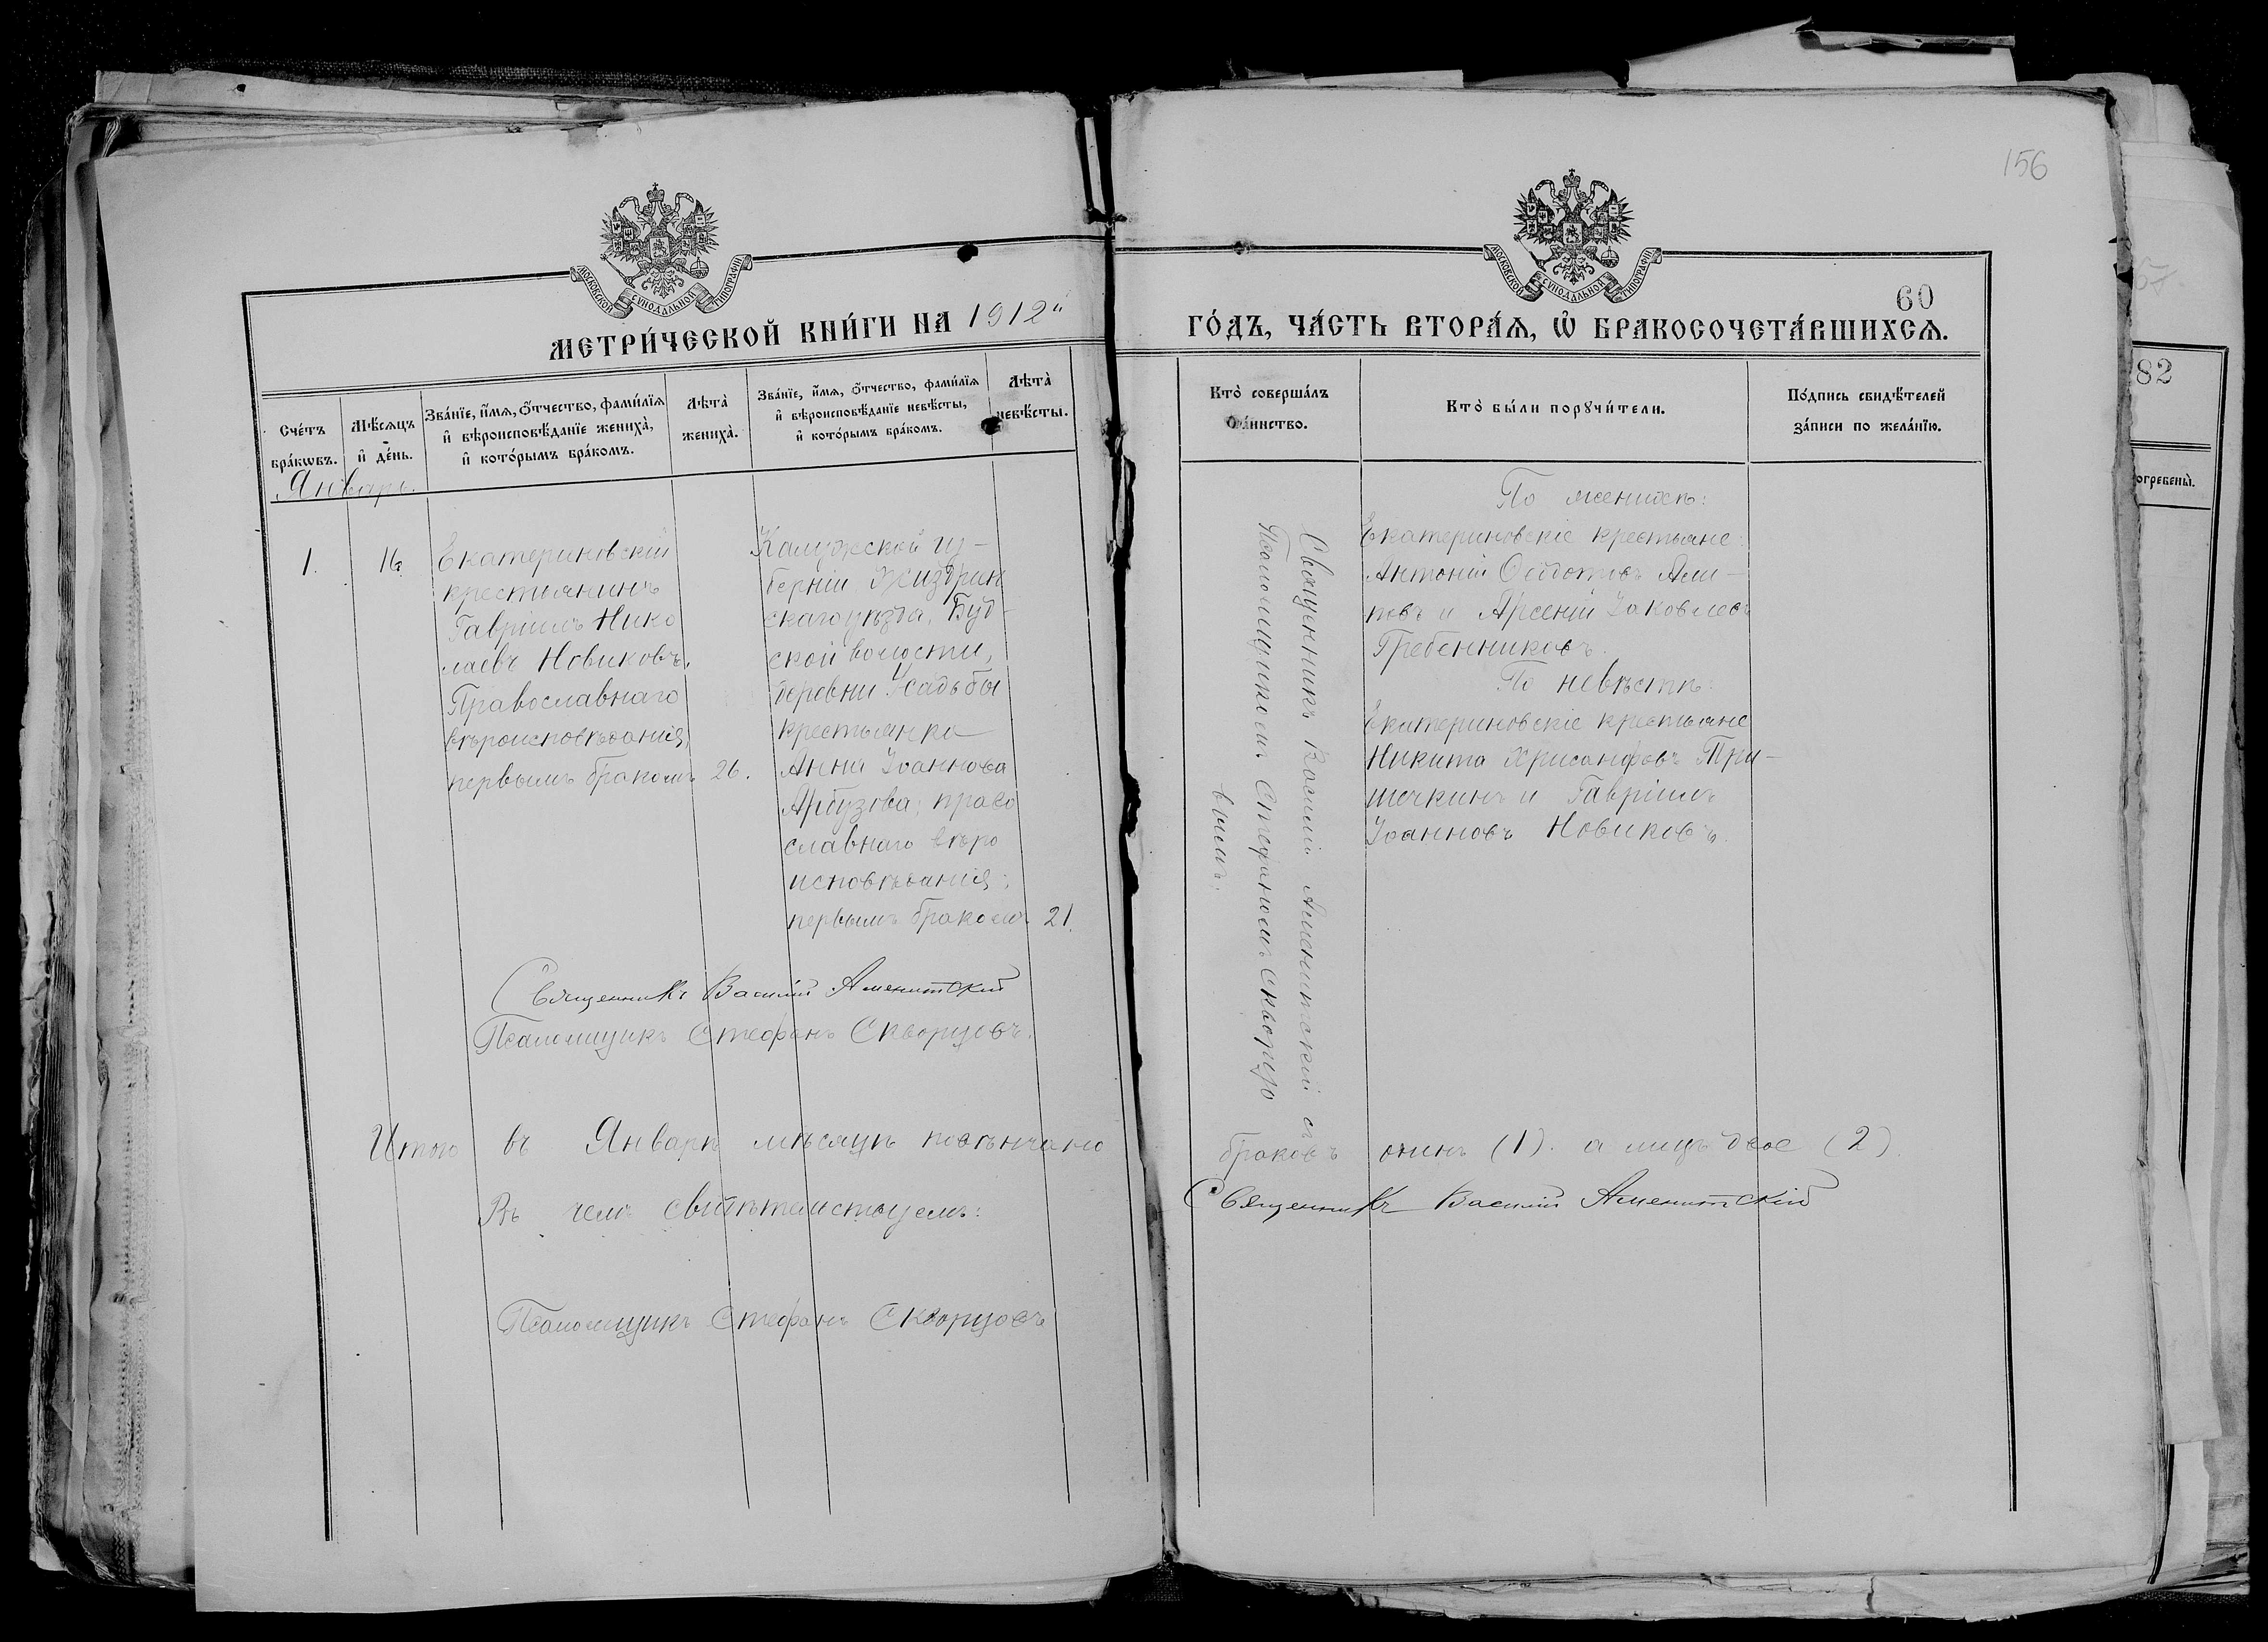 156
МОСКОВСКОЙ СУНОДАЛЬНОЙ ТИПОГРАФІИ
МОСКОВСКОЙ СУНОДАЛЬНОЙ ТИПОГРАФІИ
60
МЕТРИ́ЧЕСКОЙ КНИ́ГИ НА 1912"
ГО́ДЪ, ЧА́СТЬ ВТОРА́Я, Ѽ БРАКОСОЧЕТА́ВШИХСЯ.
Сче́тъ бра́кѡвъ.
Мѣ́сяцъ и҆ де́нь.
Зва́нїе, и҆́мя, ѻ҆́тчество, фами́лїя и҆ вѣроисповѣ́данїе жениха̀, и҆ кото́рымъ бра́комъ.
Лѣ́та̀ жениха̀.
Зва́нїе, и҆́мя, ѻ҆́тчество, фами́лїя и҆ вѣроисповѣ́данїе невѣ́сты, и҆ кото́рымъ бра́комъ.
Лѣ́та̀ невѣ́сты.
Кто̀ соверша́лъ та́инство.
Кто̀ бы́ли порꙋчи́тели.
По́дпись свидѣ́телей за́писи по жела́нїю.
Январь.
1.
16
Екатериновскій
крестьянинъ
Гавріилъ Нико
лаевъ Новиковъ,
Православнаго
вѣроисповѣданія,
первымъ бракомъ
26.
Калужской гу-
берніи Жиздрин
скаго уѣзда, Буд-
ской волости,
деревни Усадьбы
крестьянка
Анна Іоаннова
Арбузова; право
славнаго вѣро
исповѣданія;
первымъ бракомъ
21.
Священникъ Василій Аменитскій съ
Псаломщикомъ Стефаномъ Скворцо
вымъ.
По женихѣ:
Екатериновскіе крестьяне:
Антоній Ѳеодотовъ
и Арсеній Іаковлевъ
Гребенниковъ.
По невѣстѣ:
Екатериновскіе крестьяне
Никита Хрисанфовъ Три-
шечкинъ и Гавріилъ
Іоанновъ Новиковъ.
Священникъ Василій Аменитскій
Псаломщикъ Стефанъ Скворцовъ.
Итого въ Январѣ мѣсяцѣ повѣнчано
браковъ одинъ (1). а лицъ двое (2).
Въ чемъ свидѣтельствуемъ:
Священникъ Василій Аменитскій
Псаломщикъ Стефанъ Скворцовъ
82
огребены̀.